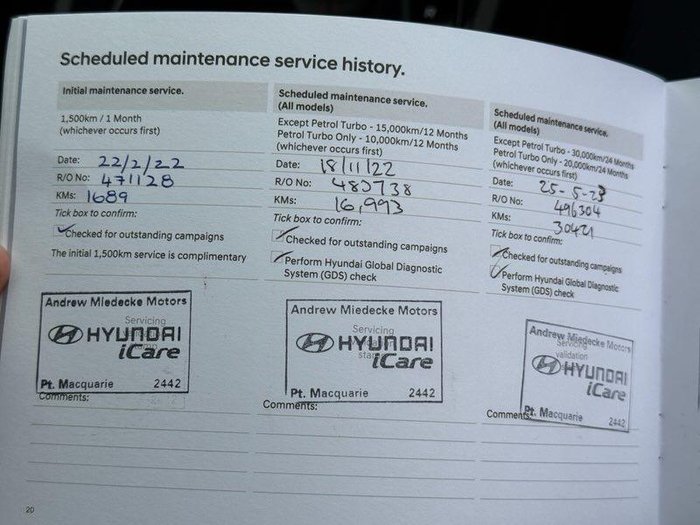 Scheduled maintenance service history.
Initial maintenance service.
1,500km / 1 Month
(whichever occurs first)
Date: 22/2/22
R/O No: 471128
KMs: 1689
Tick box to confirm:
Checked for outstanding campaigns
The initial 1,500km service is complimentary
Andrew Miedecke Motors
Servicing
HYUNDAI
iCare
Pt. Macquarie 2442
Comments:
Scheduled maintenance service.
(All models)
Except Petrol Turbo - 15,000km/12 Months
Petrol Turbo Only - 10,000km/12 Months
(whichever occurs first)
Date: 18/11/22
R/O No: 485738
KMs: 16,993
Tick box to confirm:
Checked for outstanding campaigns
Perform Hyundai Global Diagnostic
System (GDS) check
Andrew Miedecke Motors
Servicing
HYUNDAI
iCare
Pt. Macquarie 2442
Comments:
Scheduled maintenance service.
(All models)
Except Petrol Turbo - 30,000km/24 Months
Petrol Turbo Only - 20,000km/24 Months
(whichever occurs first)
Date: 25-5-23
R/O No: 496304
KMs: 30421
Tick box to confirm:
Checked for outstanding campaigns
Perform Hyundai Global Diagnostic
System (GDS) check
Andrew Miedecke Motors
Servicing
validation
HYUNDAI
iCare
Pt. Macquarie 2442
Comments:
20